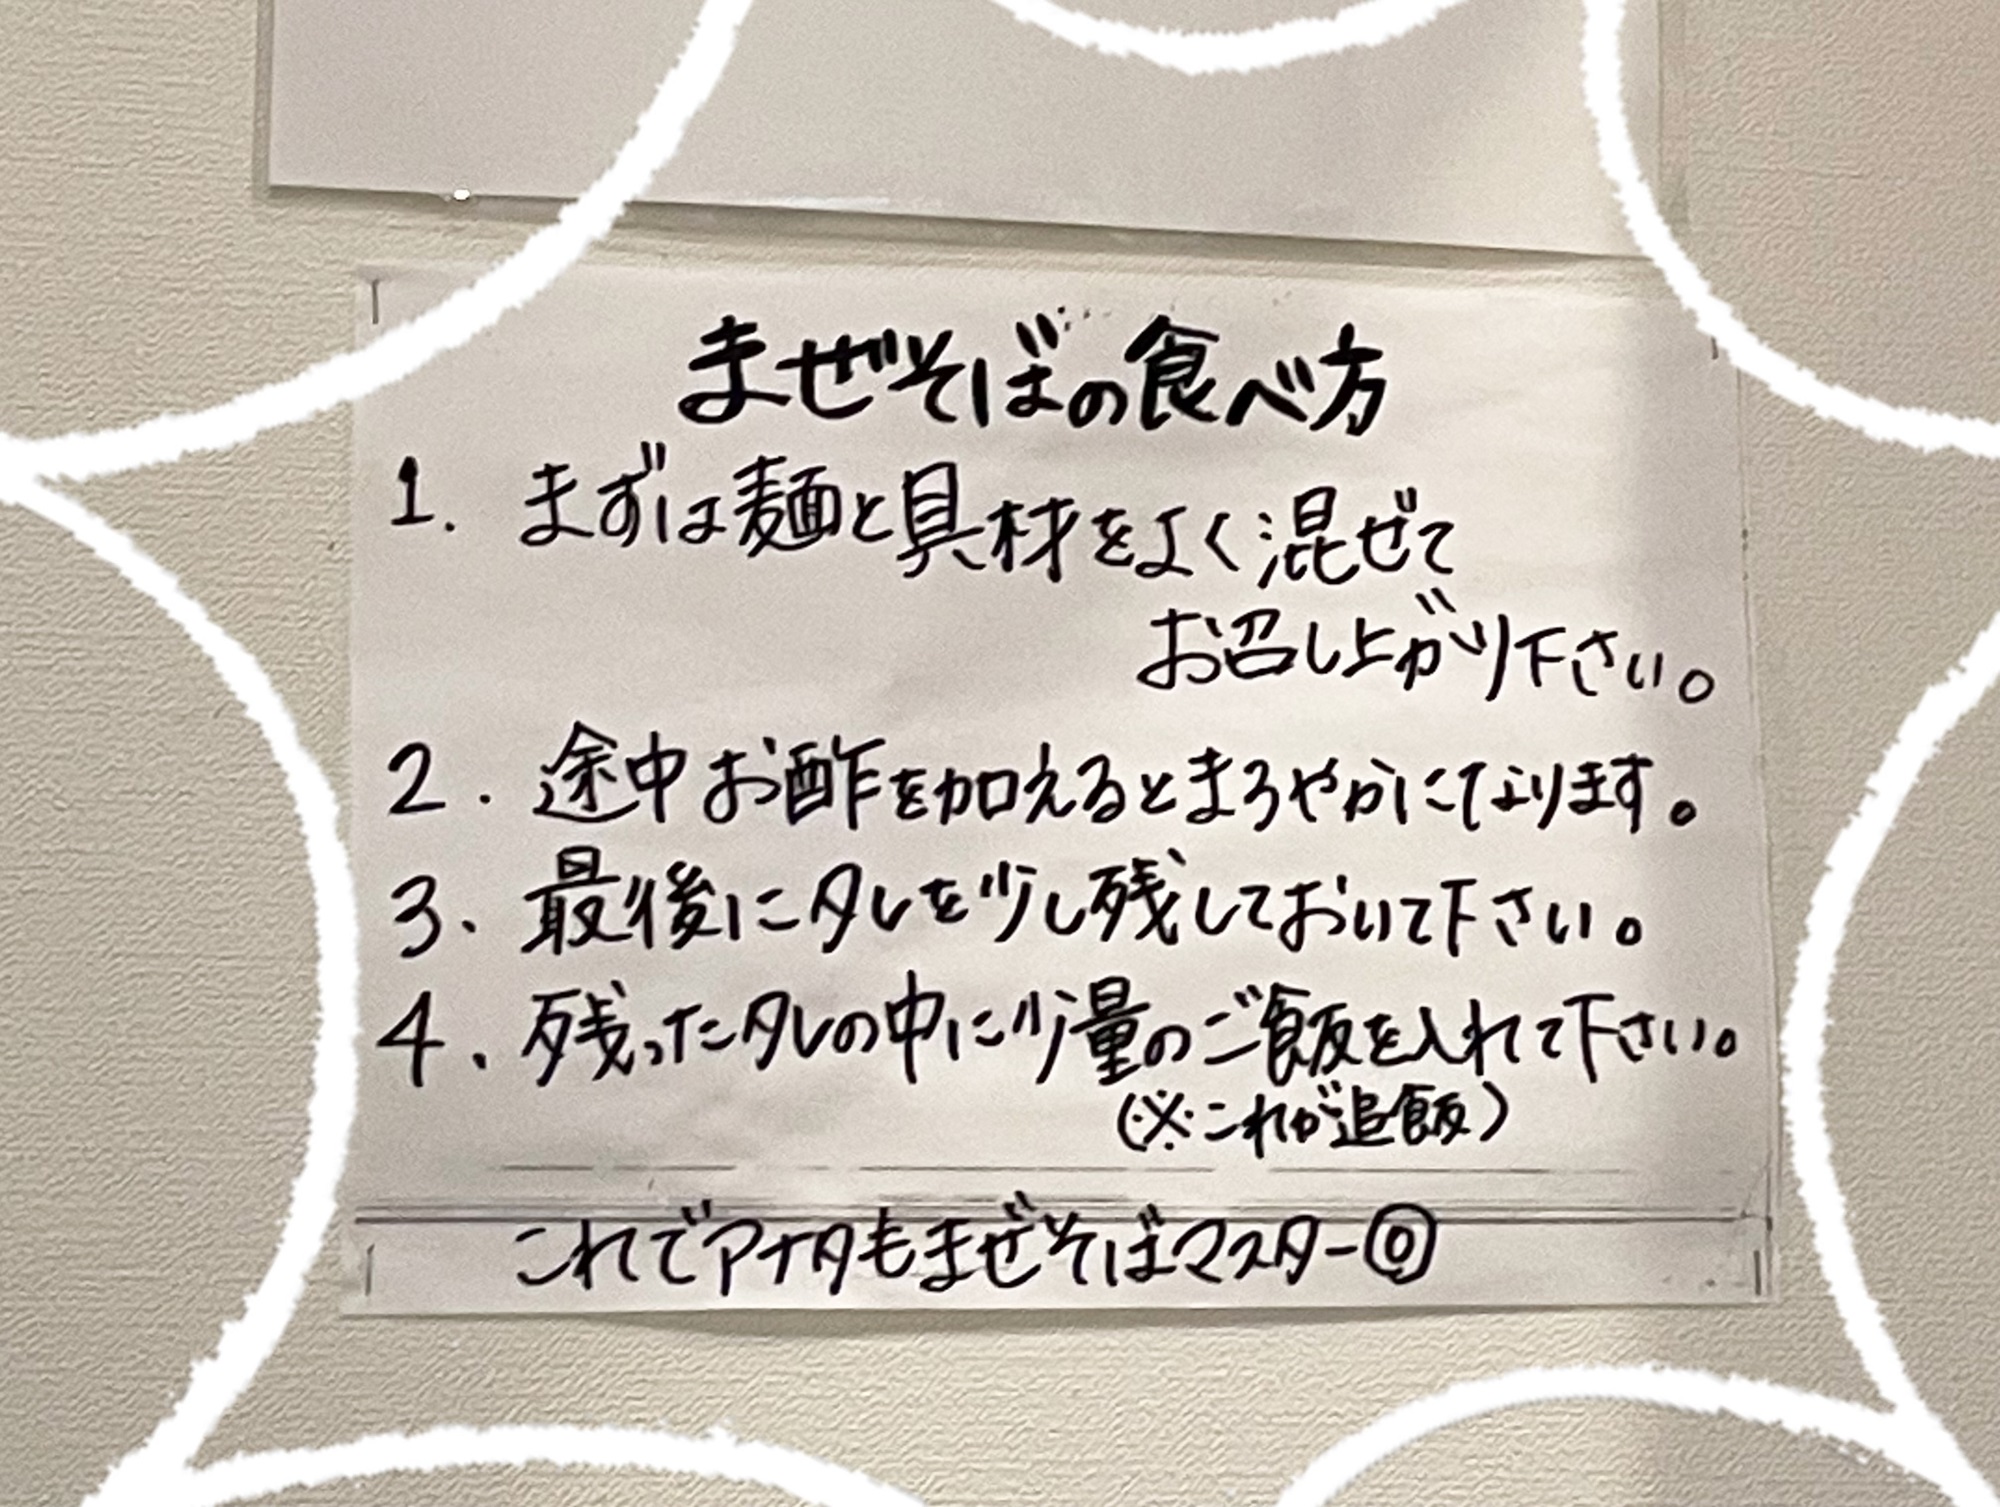 まぜそばの食べ方
1. まずは麺と具材をよく混ぜて
お召し上がり下さい。
2. 途中お酢を加えるとまろやかになります。
3、最後にタレを少し残しておいて下さい。
4、残ったタレの中に少量のご飯を入れて下さい。
(※これが追飯)
これでアナタもまぜそばマスター◎